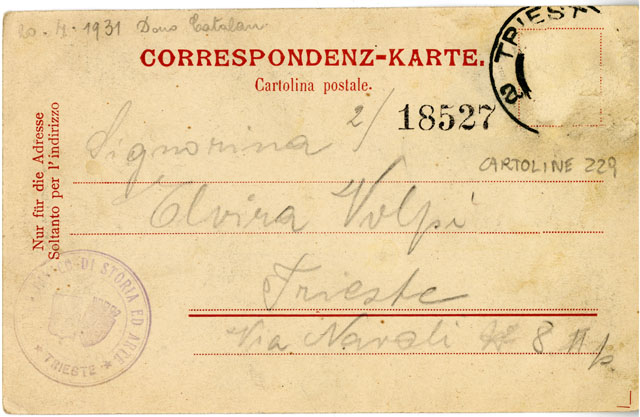 20.4.1931 Dono Catalan
CORRESPONDENZ-KARTE.
Cartolina postale.
2 TRIEST
18527
CARTOLINE 229
Nur für die Adresse
Soltanto per l'indirizzo
Signorina
Elvira Volpi
Trieste
Via Navali № 8 II p.
DI STORIA ED ARTE
★ TRIESTE ★